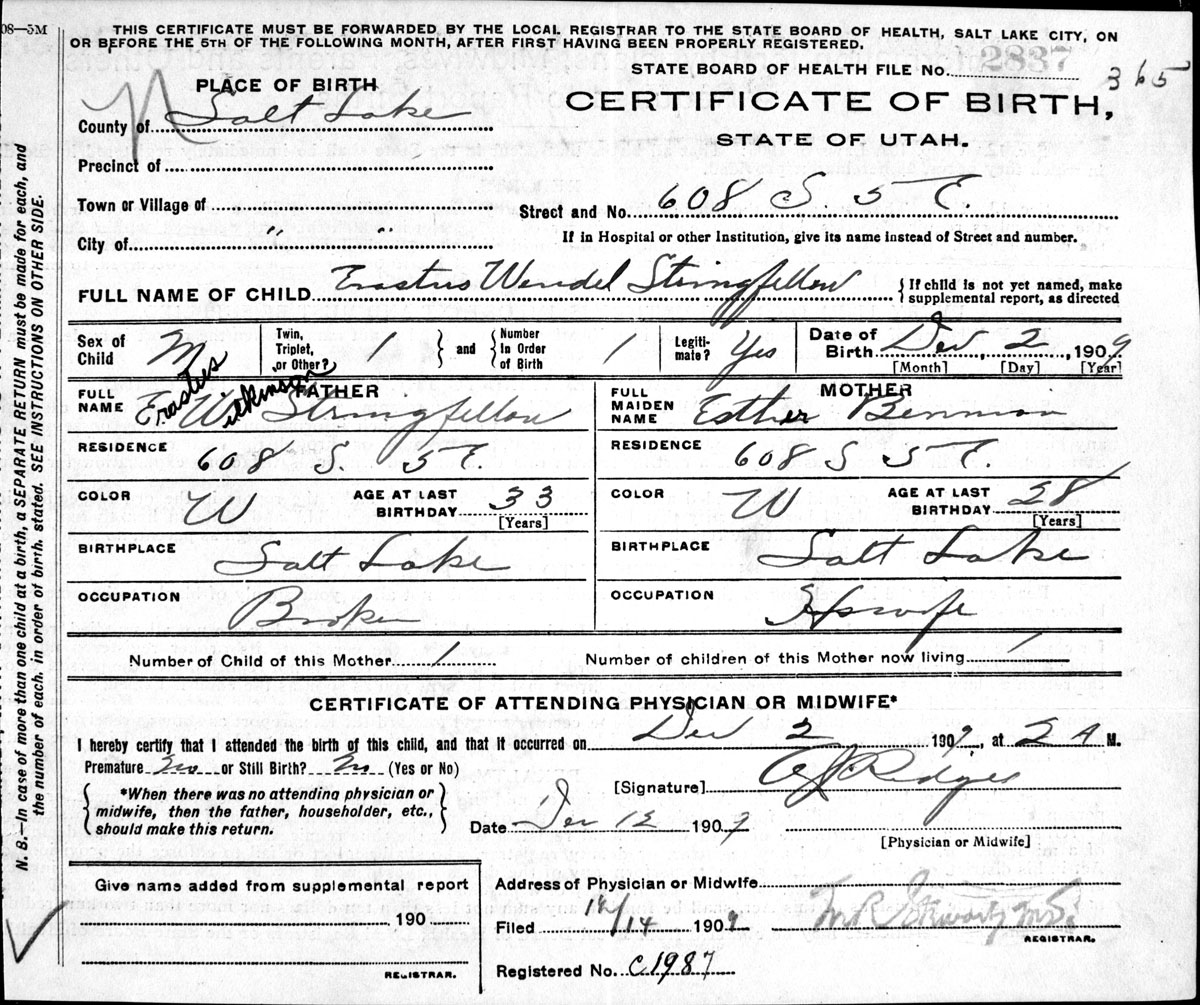 08—5M
THIS CERTIFICATE MUST BE FORWARDED BY THE LOCAL REGISTRAR TO THE STATE BOARD OF HEALTH, SALT LAKE CITY, ON
OR BEFORE THE 5TH OF THE FOLLOWING MONTH, AFTER FIRST HAVING BEEN PROPERLY REGISTERED.
STATE BOARD OF HEALTH FILE No. 2837
365
PLACE OF BIRTH
CERTIFICATE OF BIRTH,
STATE OF UTAH.
County of Salt Lake
Precinct of
Town or Village of
Street and No. 608 S. 5 E.
City of " "
If in Hospital or other Institution, give its name instead of Street and number.
FULL NAME OF CHILD Erastus Wendel Stringfellow { If child is not yet named, make supplemental report, as directed
Sex of Child M
Twin, Triplet, or Other? 1 } and { Number In Order of Birth 1
Legitimate? Yes
Date of Birth Dec, 2, 1909
[Month] [Day] [Year]
FATHER
FULL NAME Erastus Wilkinson Stringfellow
Erastus
RESIDENCE 608 S. 5 E.
COLOR W AGE AT LAST BIRTHDAY 33
[Years]
BIRTHPLACE Salt Lake
OCCUPATION Broker
MOTHER
FULL MAIDEN NAME Esther Bennion
RESIDENCE 608 S 5 E.
COLOR W AGE AT LAST BIRTHDAY 28
[Years]
BIRTHPLACE Salt Lake
OCCUPATION Hswife
Number of Child of this Mother 1 Number of children of this Mother now living 1
CERTIFICATE OF ATTENDING PHYSICIAN OR MIDWIFE*
I hereby certify that I attended the birth of this child, and that it occurred on Dec 2 1909, at 2 A M.
Premature No or Still Birth? No (Yes or No)
[Signature] Ridges
{ *When there was no attending physician or
midwife, then the father, householder, etc.,
should make this return. }
Date Dec 12 1909
[Physician or Midwife]
Give name added from supplemental report
190
REGISTRAR.
Address of Physician or Midwife
Filed 12/14 1909 M R Stewart M.D.
REGISTRAR.
Registered No. C1987
N. B.—In case of more than one child at a birth, a SEPARATE RETURN must be made for each, and
the number of each, in order of birth, stated. SEE INSTRUCTIONS ON OTHER SIDE.